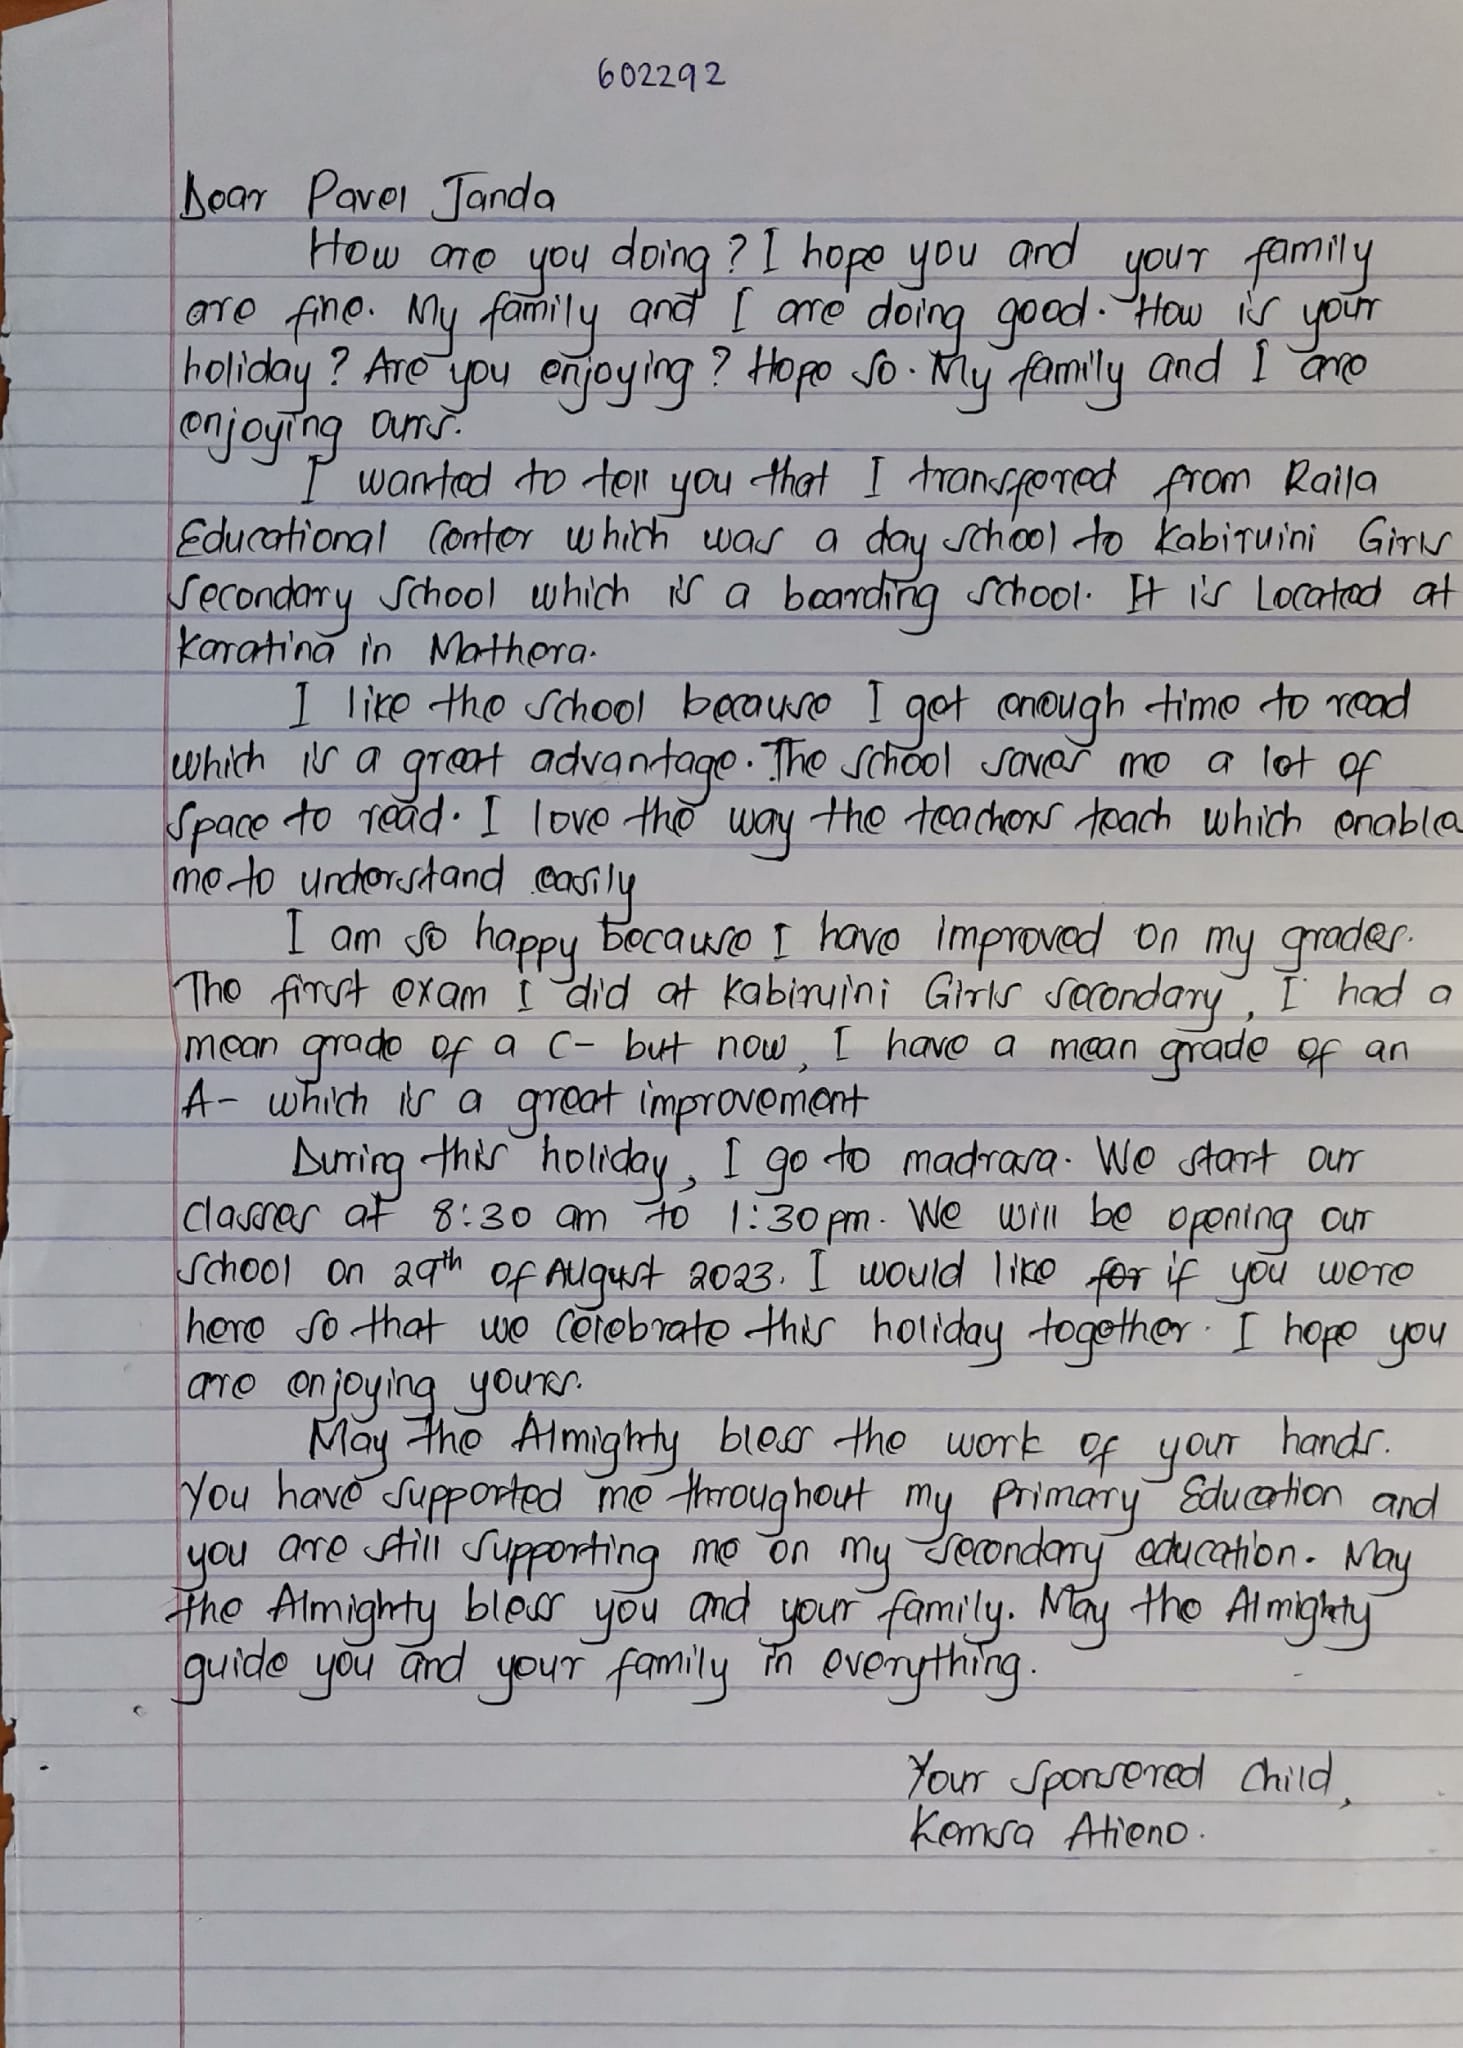 602292
Dear Pavel Janda
How are you doing? I hope you and your family
are fine. My family and I are doing good. How is your
holiday? Are you enjoying? Hope so. My family and I are
enjoying ours.
I wanted to tell you that I transfered from Raila
Educational Center which was a day school to Kabiruini Girls
Secondary School which is a boarding school. It is Located at
Karatina in Mathera.
I like the school because I get enough time to read
which is a great advantage. The school saves me a lot of
space to read. I love the way the teachers teach which enable
me to understand easily
I am so happy because I have improved on my grades.
The first exam I did at Kabiruini Girls secondary, I had a
mean grade of a C- but now, I have a mean grade of an
A- which is a great improvement
During this holiday, I go to madrasa. We start our
classes at 8:30 am to 1:30 pm. We will be opening our
school on 29th of August 2023. I would like for if you were
here so that we celebrate this holiday together. I hope you
are enjoying yours.
May the Almighty bless the work of your hands.
You have supported me throughout my Primary Education and
you are still supporting me on my secondary education. May
the Almighty bless you and your family. May the Almighty
guide you and your family in everything.
Your sponsered child,
Kemsa Atieno.